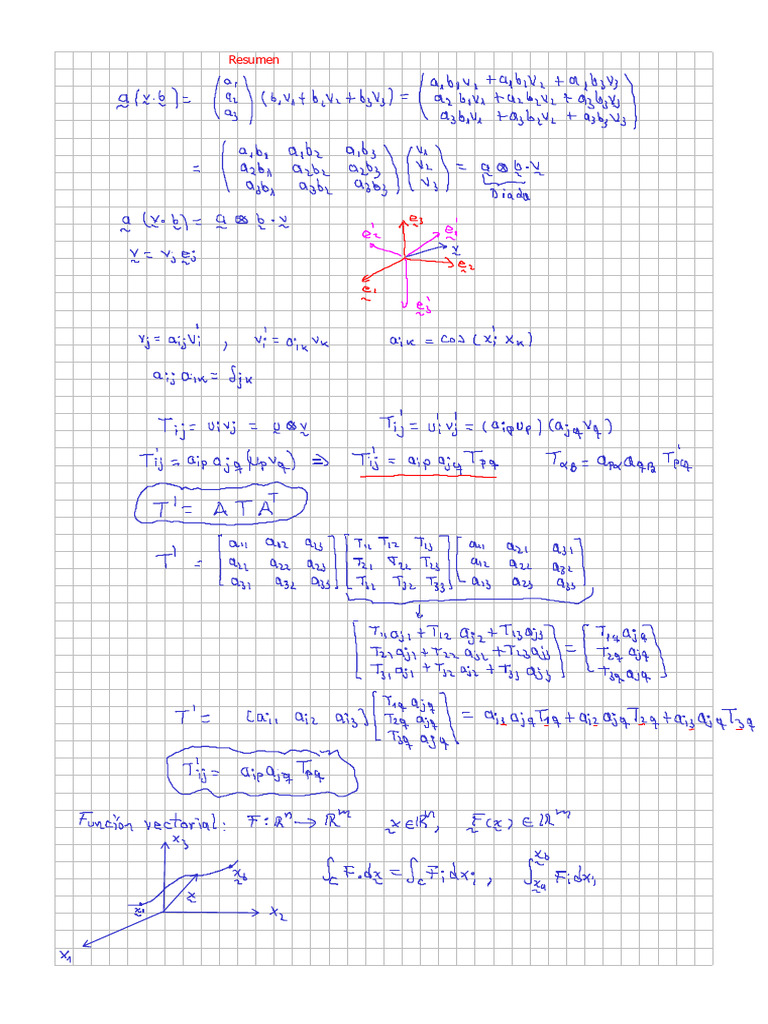 Resumen
a̰ (v̰·b̰) = (a₁ a₂ a₃) (b₁v₁ + b₂v₂ + b₃v₃) = (a₁b₁v₁ + a₁b₂v₂ + a₁b₃v₃
a₂b₁v₁ + a₂b₂v₂ + a₂b₃v₃
a₃b₁v₁ + a₃b₂v₂ + a₃b₃v₃)
= (a₁b₁ a₁b₂ a₁b₃
a₂b₁ a₂b₂ a₂b₃
a₃b₁ a₃b₂ a₃b₃) (v₁ v₂ v₃) = a̰ ⊗ b̰ · v̰
Diada
a̰ (v̰·b̰) = a̰ ⊗ b̰ · v̰
v̰ = vⱼ ḛⱼ
ḛ₃ ḛ₁' ḛ₂' v̰ ḛ₂ ḛ₁ ḛ₃'
vⱼ = aᵢⱼ vᵢ' , vᵢ' = aᵢₖ vₖ aᵢₖ = cos (xᵢ' xₖ)
aᵢⱼ aᵢₖ = δⱼₖ
Tᵢⱼ = uᵢvⱼ = ṵ ⊗ v̰ Tᵢⱼ' = uᵢ'vⱼ' = (a_ip u_p) (a_jq v_q)
Tᵢⱼ' = a_ip a_jq (u_p v_q) ⟹ Tᵢⱼ' = a_ip a_jq T_pq T_αβ = a_pα a_qβ T'_pq
T' = A T Aᵀ
T' = [a₁₁ a₁₂ a₁₃
a₂₁ a₂₂ a₂₃
a₃₁ a₃₂ a₃₃] [T₁₁ T₁₂ T₁₃
T₂₁ T₂₂ T₂₃
T₃₂ T₃₂ T₃₃] [a₁₁ a₂₁ a₃₁
a₁₂ a₂₂ a₃₂
a₁₃ a₂₃ a₃₃]
[T₁₁aⱼ₁ + T₁₂ aⱼ₂ + T₁₃aⱼ₃
T₂₁aⱼ₁ + T₂₂ aⱼ₂ + T₂₃aⱼ₃
T₃₁aⱼ₁ + T₃₂ aⱼ₂ + T₃₃ aⱼ₃] = [T_1q a_jq
T_2q a_jq
T_3q a_jq]
T' = [aᵢ₁ aᵢ₂ aᵢ₃] [T_1q a_jq
T_2q a_jq
T_3q a_jq] = aᵢ₁ a_jq T_1q + aᵢ₂ a_jq T_2q + aᵢ₃ a_jq T_3q
Tᵢⱼ' = a_ip a_jq T_pq
Función vectorial: F: ℝⁿ → ℝᵐ x̰ ∈ ℝⁿ, F̰(x̰) ∈ ℝᵐ
∫_C F·dx̰ = ∫_C Fᵢ dxᵢ , ∫_{x̰a}^{x̰b} Fᵢ dxᵢ
x₃ x̰b x̰ x̰a x₂ x₁